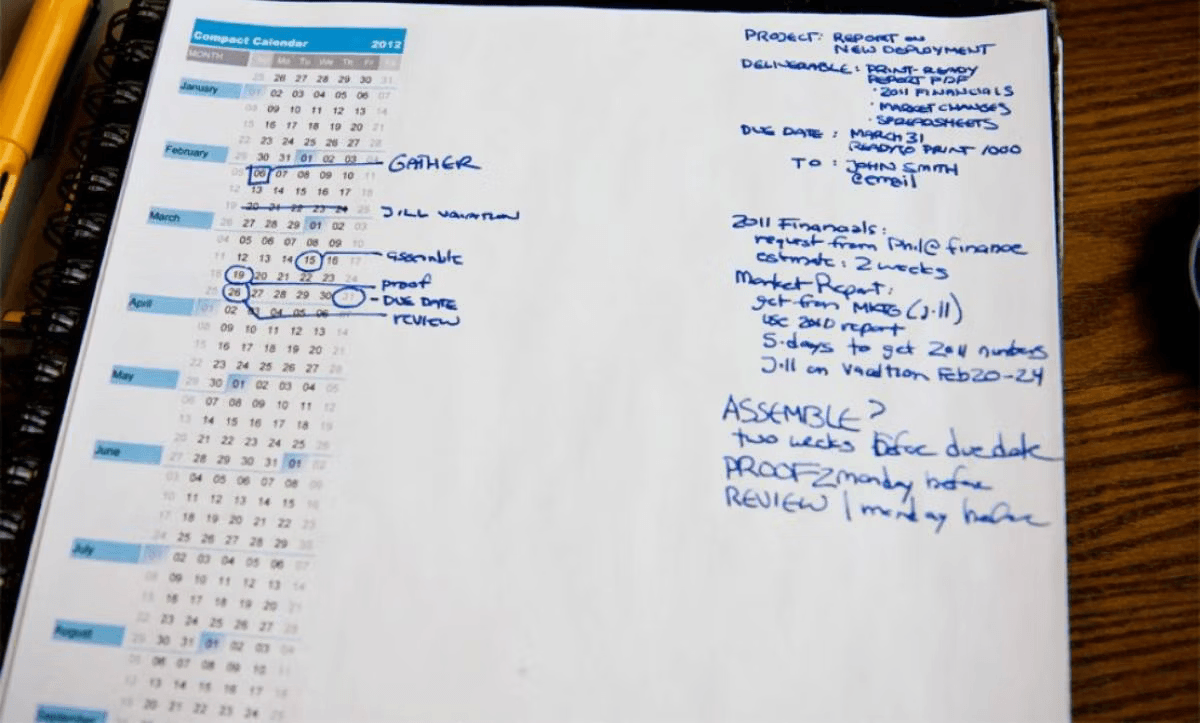 Compact Calendar 2012
MONTH Su Mo Tu We Th Fr Sa
25 26 27 28 29 30 31
January 01 02 03 04 05 06 07
08 09 10 11 12 13 14
15 16 17 18 19 20 21
22 23 24 25 26 27 28
February 29 30 31 01 02 03 04
05 06 07 08 09 10 11
GATHER
12 13 14 15 16 17 18
19 20 21 22 23 24 25
JILL VACATION
March 26 27 28 29 01 02 03
04 05 06 07 08 09 10
11 12 13 14 15 16 17
assemble
18 19 20 21 22 23 24
proof
25 26 27 28 29 30 31
DUE DATE
April 01 02 03 04 05 06 07
REVIEW
08 09 10 11 12 13 14
15 16 17 18 19 20 21
22 23 24 25 26 27 28
May 29 30 01 02 03 04 05
06 07 08 09 10 11 12
13 14 15 16 17 18 19
20 21 22 23 24 25 26
June 27 28 29 30 31 01 02
03 04 05 06 07 08 09
10 11 12 13 14 15 16
17 18 19 20 21 22 23
24 25 26 27 28 29 30
July 01 02 03 04 05 06 07
08 09 10 11 12 13 14
15 16 17 18 19 20 21
22 23 24 25 26 27 28
August 29 30 31 01 02 03 04
05 06 07 08 09 10 11
12 13 14 15 16 17 18
19 20 21 22 23 24 25
September
PROJECT: REPORT ON
NEW DEPLOYMENT
DELIVERABLE: PRINT-READY
REPORT PDF
· 2011 FINANCIALS
· MARKET CHANGES
· SPREADSHEETS
DUE DATE: MARCH 31
READY TO PRINT 1000
TO: JOHN SMITH
@email
2011 Financials:
request from Phil@finance
estimate: 2 weeks
Market Report:
get from MKTG (Jill)
use 2010 report
5-days to get 2011 numbers
Jill on vacation Feb 20-24
ASSEMBLE?
two weeks before due date
PROOF 2 monday before
REVIEW 1 monday before